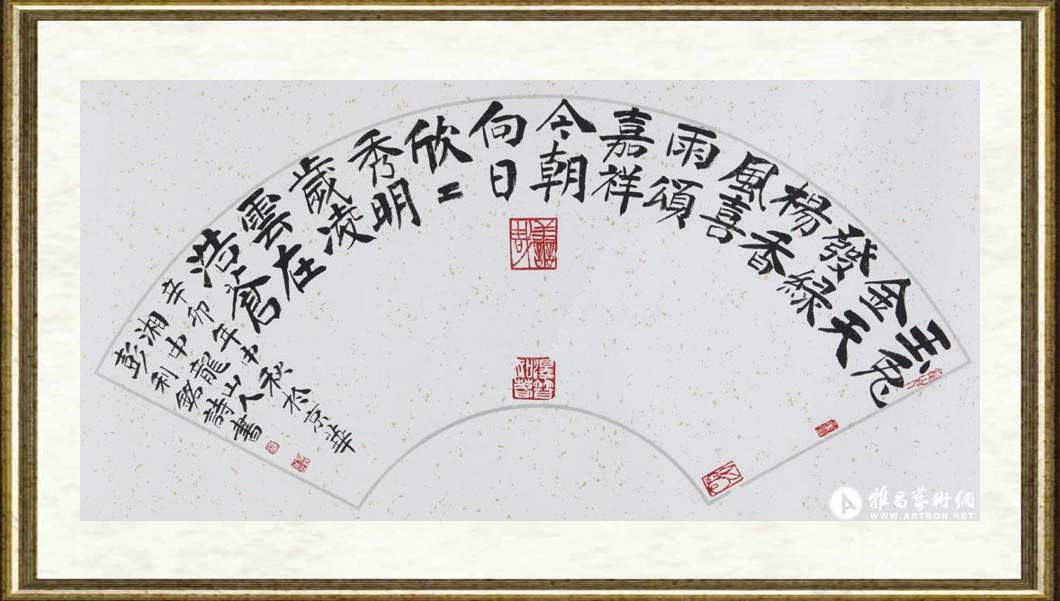 玉兔
金天
發綠
楊香
風喜
雨頌
嘉祥
今朝
向日
欣〻
秀明
歲凌
雲在
浩蒼
辛卯年中秋於京華
湘中龍山人
彭利銘詩書
雅昌藝術網
WWW.ARTRON.NET